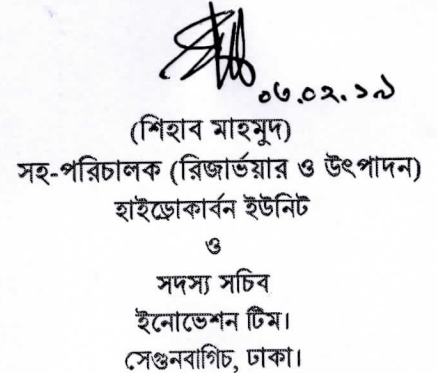 ০৬.০২.১৯
(শিহাব মাহমুদ)
সহ-পরিচালক (রিজার্ভয়ার ও উৎপাদন)
হাইড্রোকার্বন ইউনিট
ও
সদস্য সচিব
ইনোভেশন টিম।
সেগুনবাগিচ, ঢাকা।